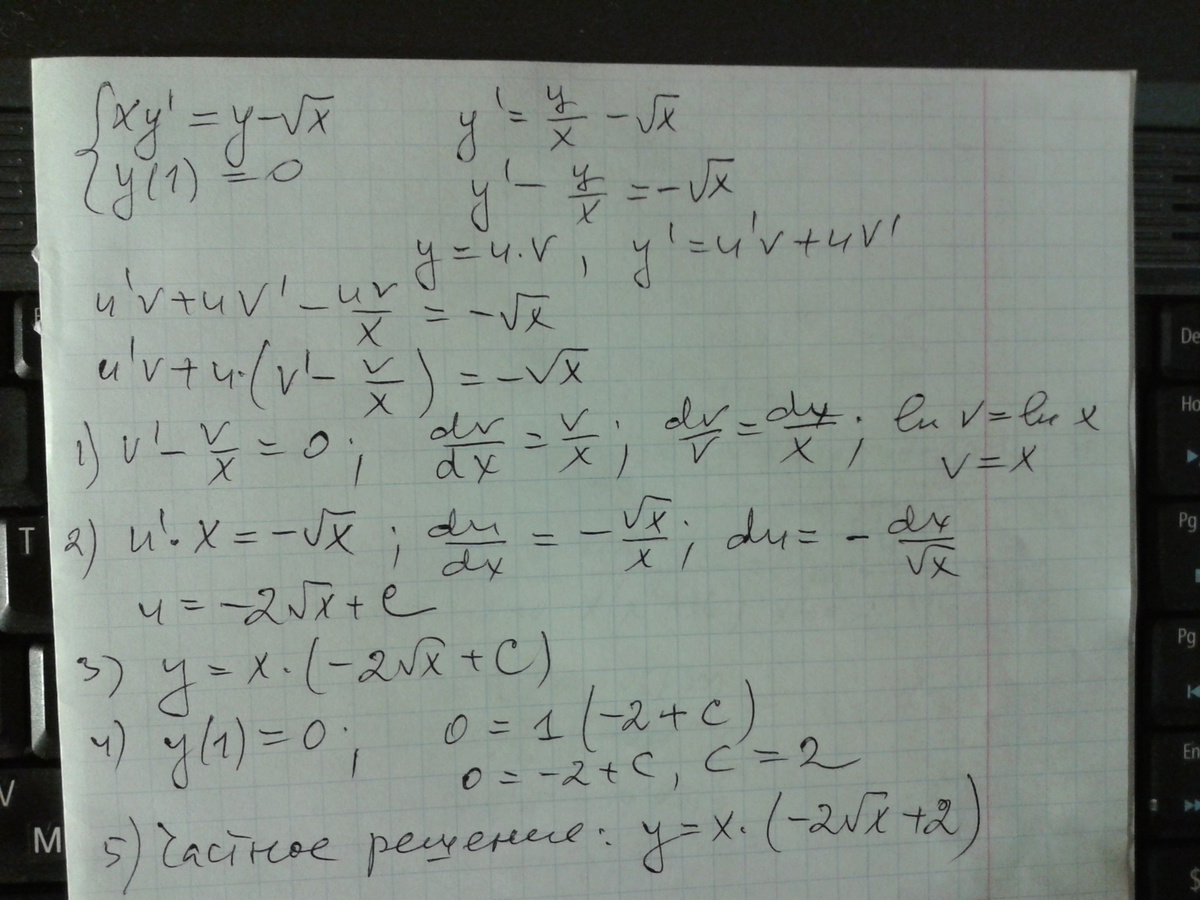 { xy' = y - √x      y' = y/x - √x
{ y(1) = 0      y' - y/x = -√x
y = u·v, y' = u'v + uv'
u'v + uv' - uv/x = -√x
u'v + u·(v' - v/x) = -√x
1) v' - v/x = 0; dv/dx = v/x; dv/v = dx/x; ln v = ln x
v = x
2) u'·x = -√x; du/dx = -√x/x; du = -dx/√x
u = -2√x + C
3) y = x·(-2√x + C)
4) y(1) = 0; 0 = 1(-2 + C)
0 = -2 + C, C = 2
5) Частное решение: y = x·(-2√x + 2)
De
Ho
Pg
Pg
En
T
V
M
$